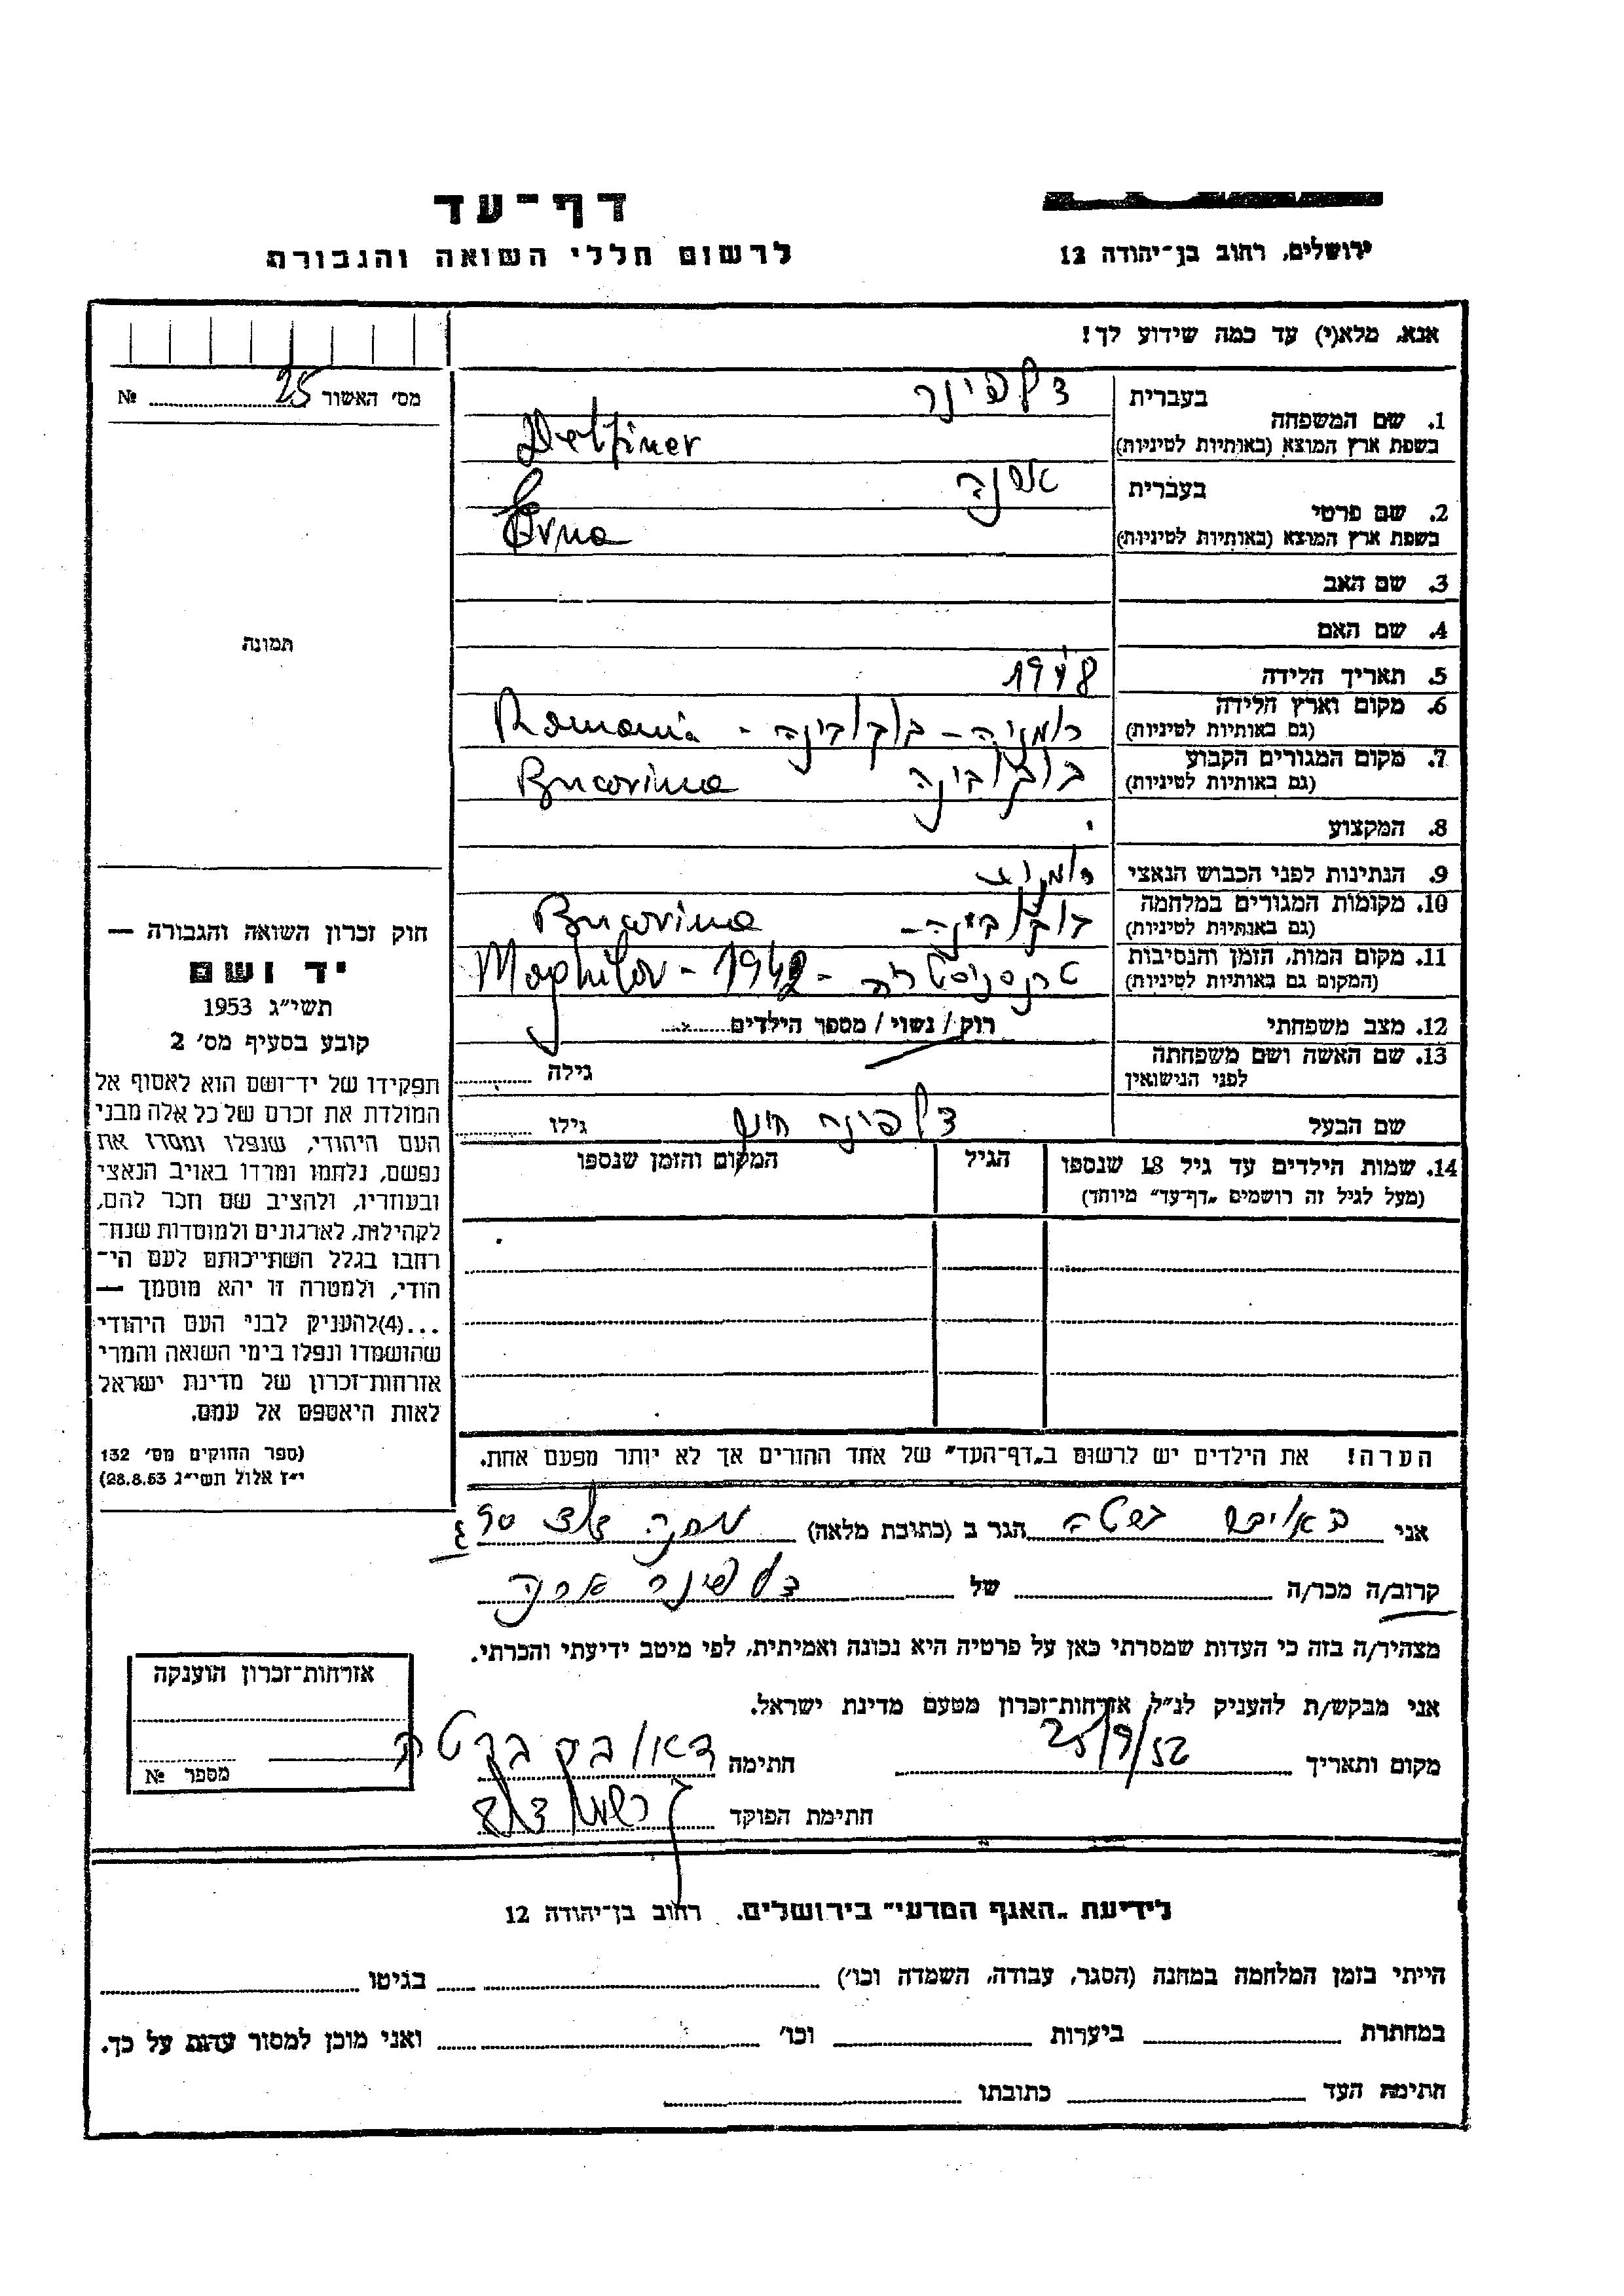 דף־עד
לרשום חללי השואה והגבורה
ירושלים, רחוב בן־יהודה 12
אנא, מלא(י) עד כמה שידוע לך!
מס' האשור 25 №
1. שם המשפחה
בעברית דלפינר
בשפת ארץ המוצא (באותיות לטיניות) Delfiner
2. שם פרטי
בעברית ארנה
בשפת ארץ המוצא (באותיות לטיניות) Erna
3. שם האב
4. שם האם
5. תאריך הלידה
6. מקום וארץ הלידה רומניה – בוקובינה -
(גם באותיות לטיניות)
7. מקום המגורים הקבוע בוקובינה Bucovina
(גם באותיות לטיניות)
8. המקצוע
9. הנתינות לפני הכבוש הנאצי
10. מקומות המגורים במלחמה בוקובינה – Bucovina
(גם באותיות לטיניות)
11. מקום המות, הזמן והנסיבות טרנסניסטריה - 1942 - Moghilov
(המקום גם באותיות לטיניות)
12. מצב משפחתי רוק / נשוי / מספר הילדים
13. שם האשה ושם משפחתה
לפני הנישואין גילה
שם הבעל דלפינר גילו
14. שמות הילדים עד גיל 18 שנספו
(מעל לגיל זה רושמים „דף־עד” מיוחד)
הגיל
המקום והזמן שנספו
תמונה
חוק זכרון השואה והגבורה —
יד ושם
תשי״ג 1953
קובע בסעיף מס' 2
תפקידו של יד־ושם הוא לאסוף אל
המולדת את זכרם של כל אלה מבני
העם היהודי, שנפלו ומסרו את
נפשם, נלחמו ומרדו באויב הנאצי
ובעוזריו, ולהציב שם וזכר להם,
לקהילות, לארגונים ולמוסדות שנח־
רבו בגלל השתייכותם לעם הי־
הודי, ולמטרה זו יהא מוסמך —
...(4)להעניק לבני העם היהודי
שהושמדו ונפלו בימי השואה והמרי
אזרחות־זכרון של מדינת ישראל
לאות היאספם אל עמם.
(ספר החוקים מס' 132
י״ז אלול תשי״ג 28.8.53)
הערה! את הילדים יש לרשום ב„דף־העד” של אחד ההורים אך לא יותר מפעם אחת.
אני ברטה הגר ב (כתובת מלאה) מחנה
קרוב/ה מכר/ה של דלפינר ארנה
מצהיר/ה בזה כי העדות שמסרתי כאן על פרטיה היא נכונה ואמיתית, לפי מיטב ידיעתי והכרתי.
אני מבקש/ת להעניק לנ״ל אזרחות־זכרון מטעם מדינת ישראל.
מקום ותאריך חתימה ברטה
חתימת הפוקד
אזרחות־זכרון הוענקה
מספר №
לידיעת „האגף המדעי” בירושלים. רחוב בן־יהודה 12
הייתי בזמן המלחמה במחנה (הסגר, עבודה, השמדה וכו') בגיטו
במחתרת ביערות וכו' ואני מוכן למסור עדות על כך.
חתימת העד כתובתו